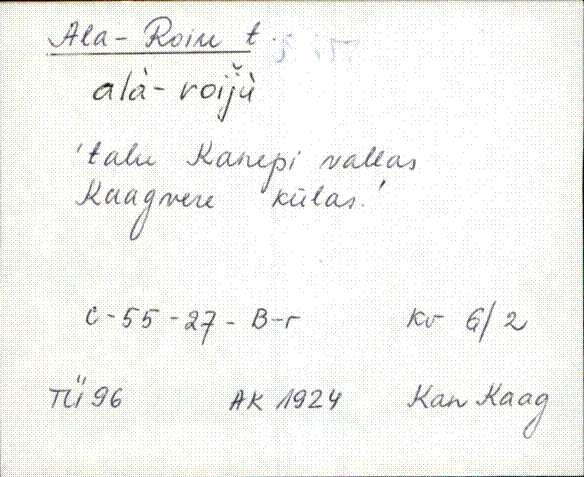 Ala-Roiu t.
alà-roiǰù
'talu Kanepi vallas
Kaagvere külas.'
C-55-27-B-г Kv G/2
TÜ 96 AK 1924 Kan Kaag